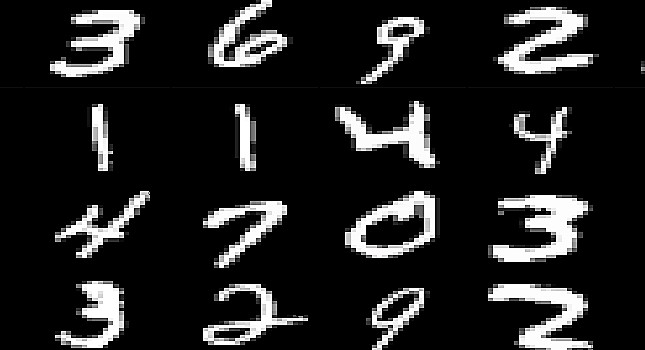 3 6 9 2
1 1 4 4
4 7 0 3
3 2 9 2